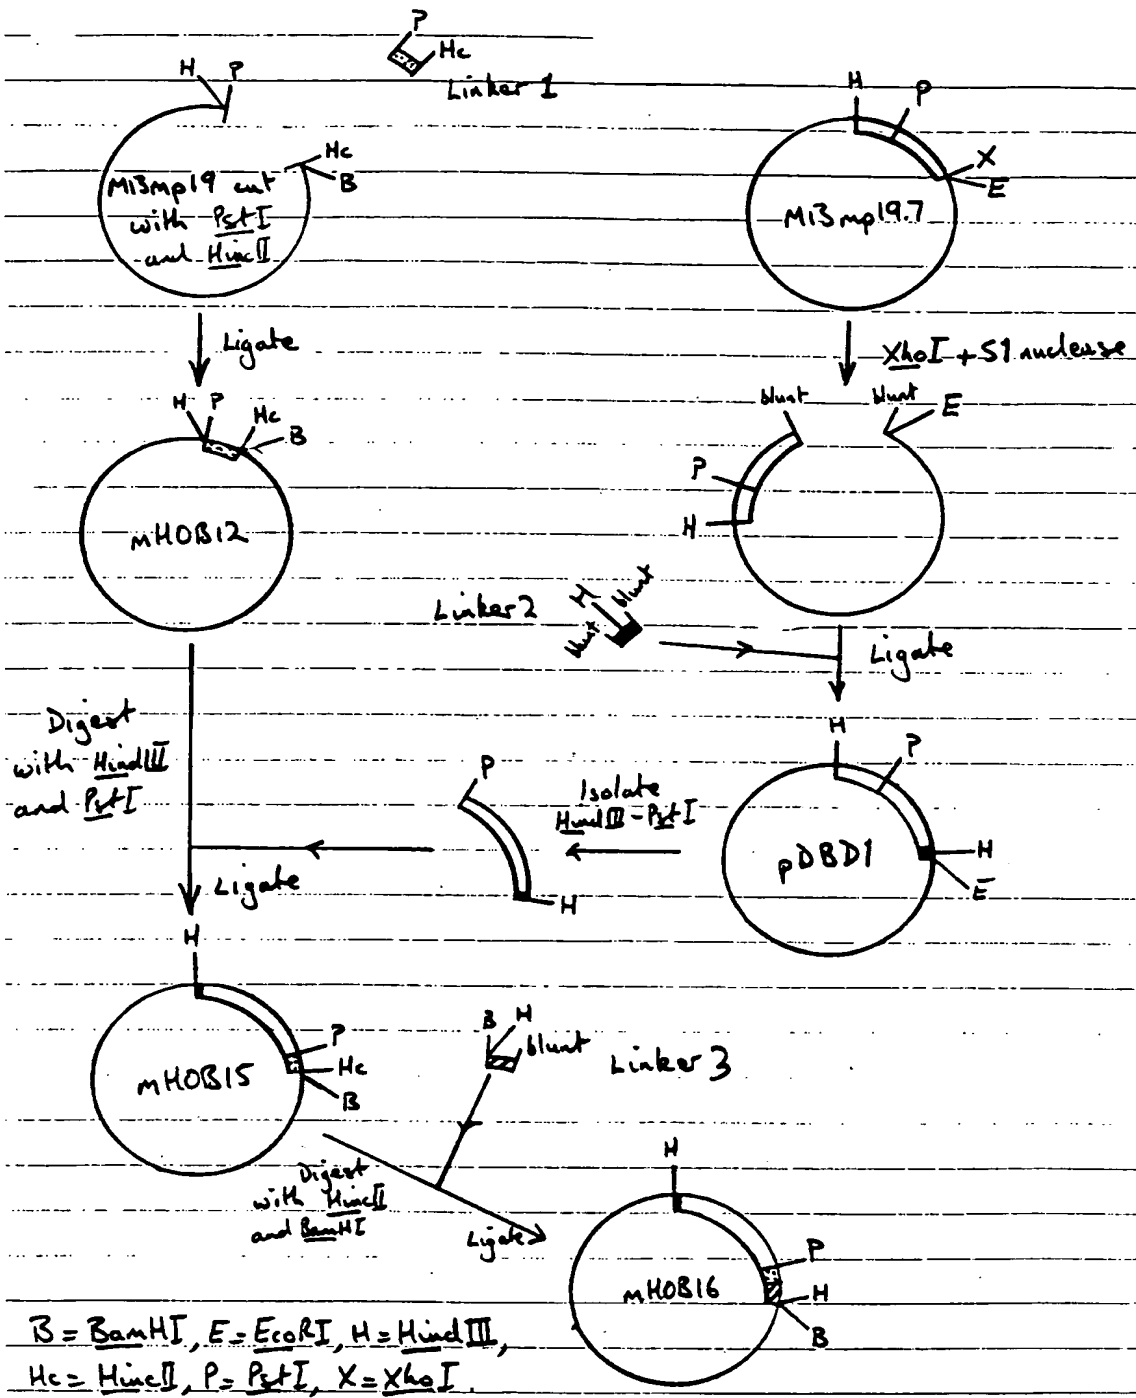 P
Hc
Linker 1
H P
Hc
B
M13mp19 cut
with PstI
and HincII
H
P
X
E
M13mp19.7
Ligate
XhoI + S1 nuclease
H P
Hc
B
mHOB12
blunt
blunt
E
P
H
Linker 2
H
blunt
blunt
Ligate
Digest
with HindIII
and PstI
P
H
Isolate
HindIII - PstI
H
P
H
E
pDBD1
Ligate
H
P
Hc
B
mHOB15
B H
blunt
Linker 3
Digest
with HincII
and BamHI
Ligate
H
P
H
B
mHOB16
B = BamHI, E = EcoRI, H = HindIII,
Hc = HincII, P = PstI, X = XhoI.